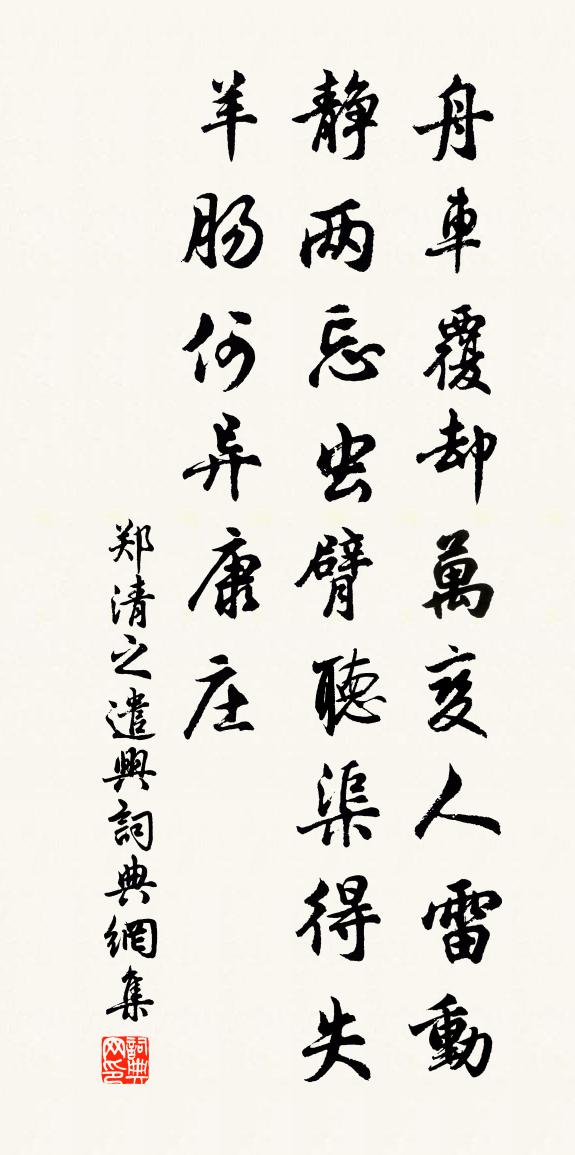 舟車覆却萬变人雷動
静两忘虫臂聽渠得失
羊肠何异康庄
郑清之遣興詞典網集
詞典网印